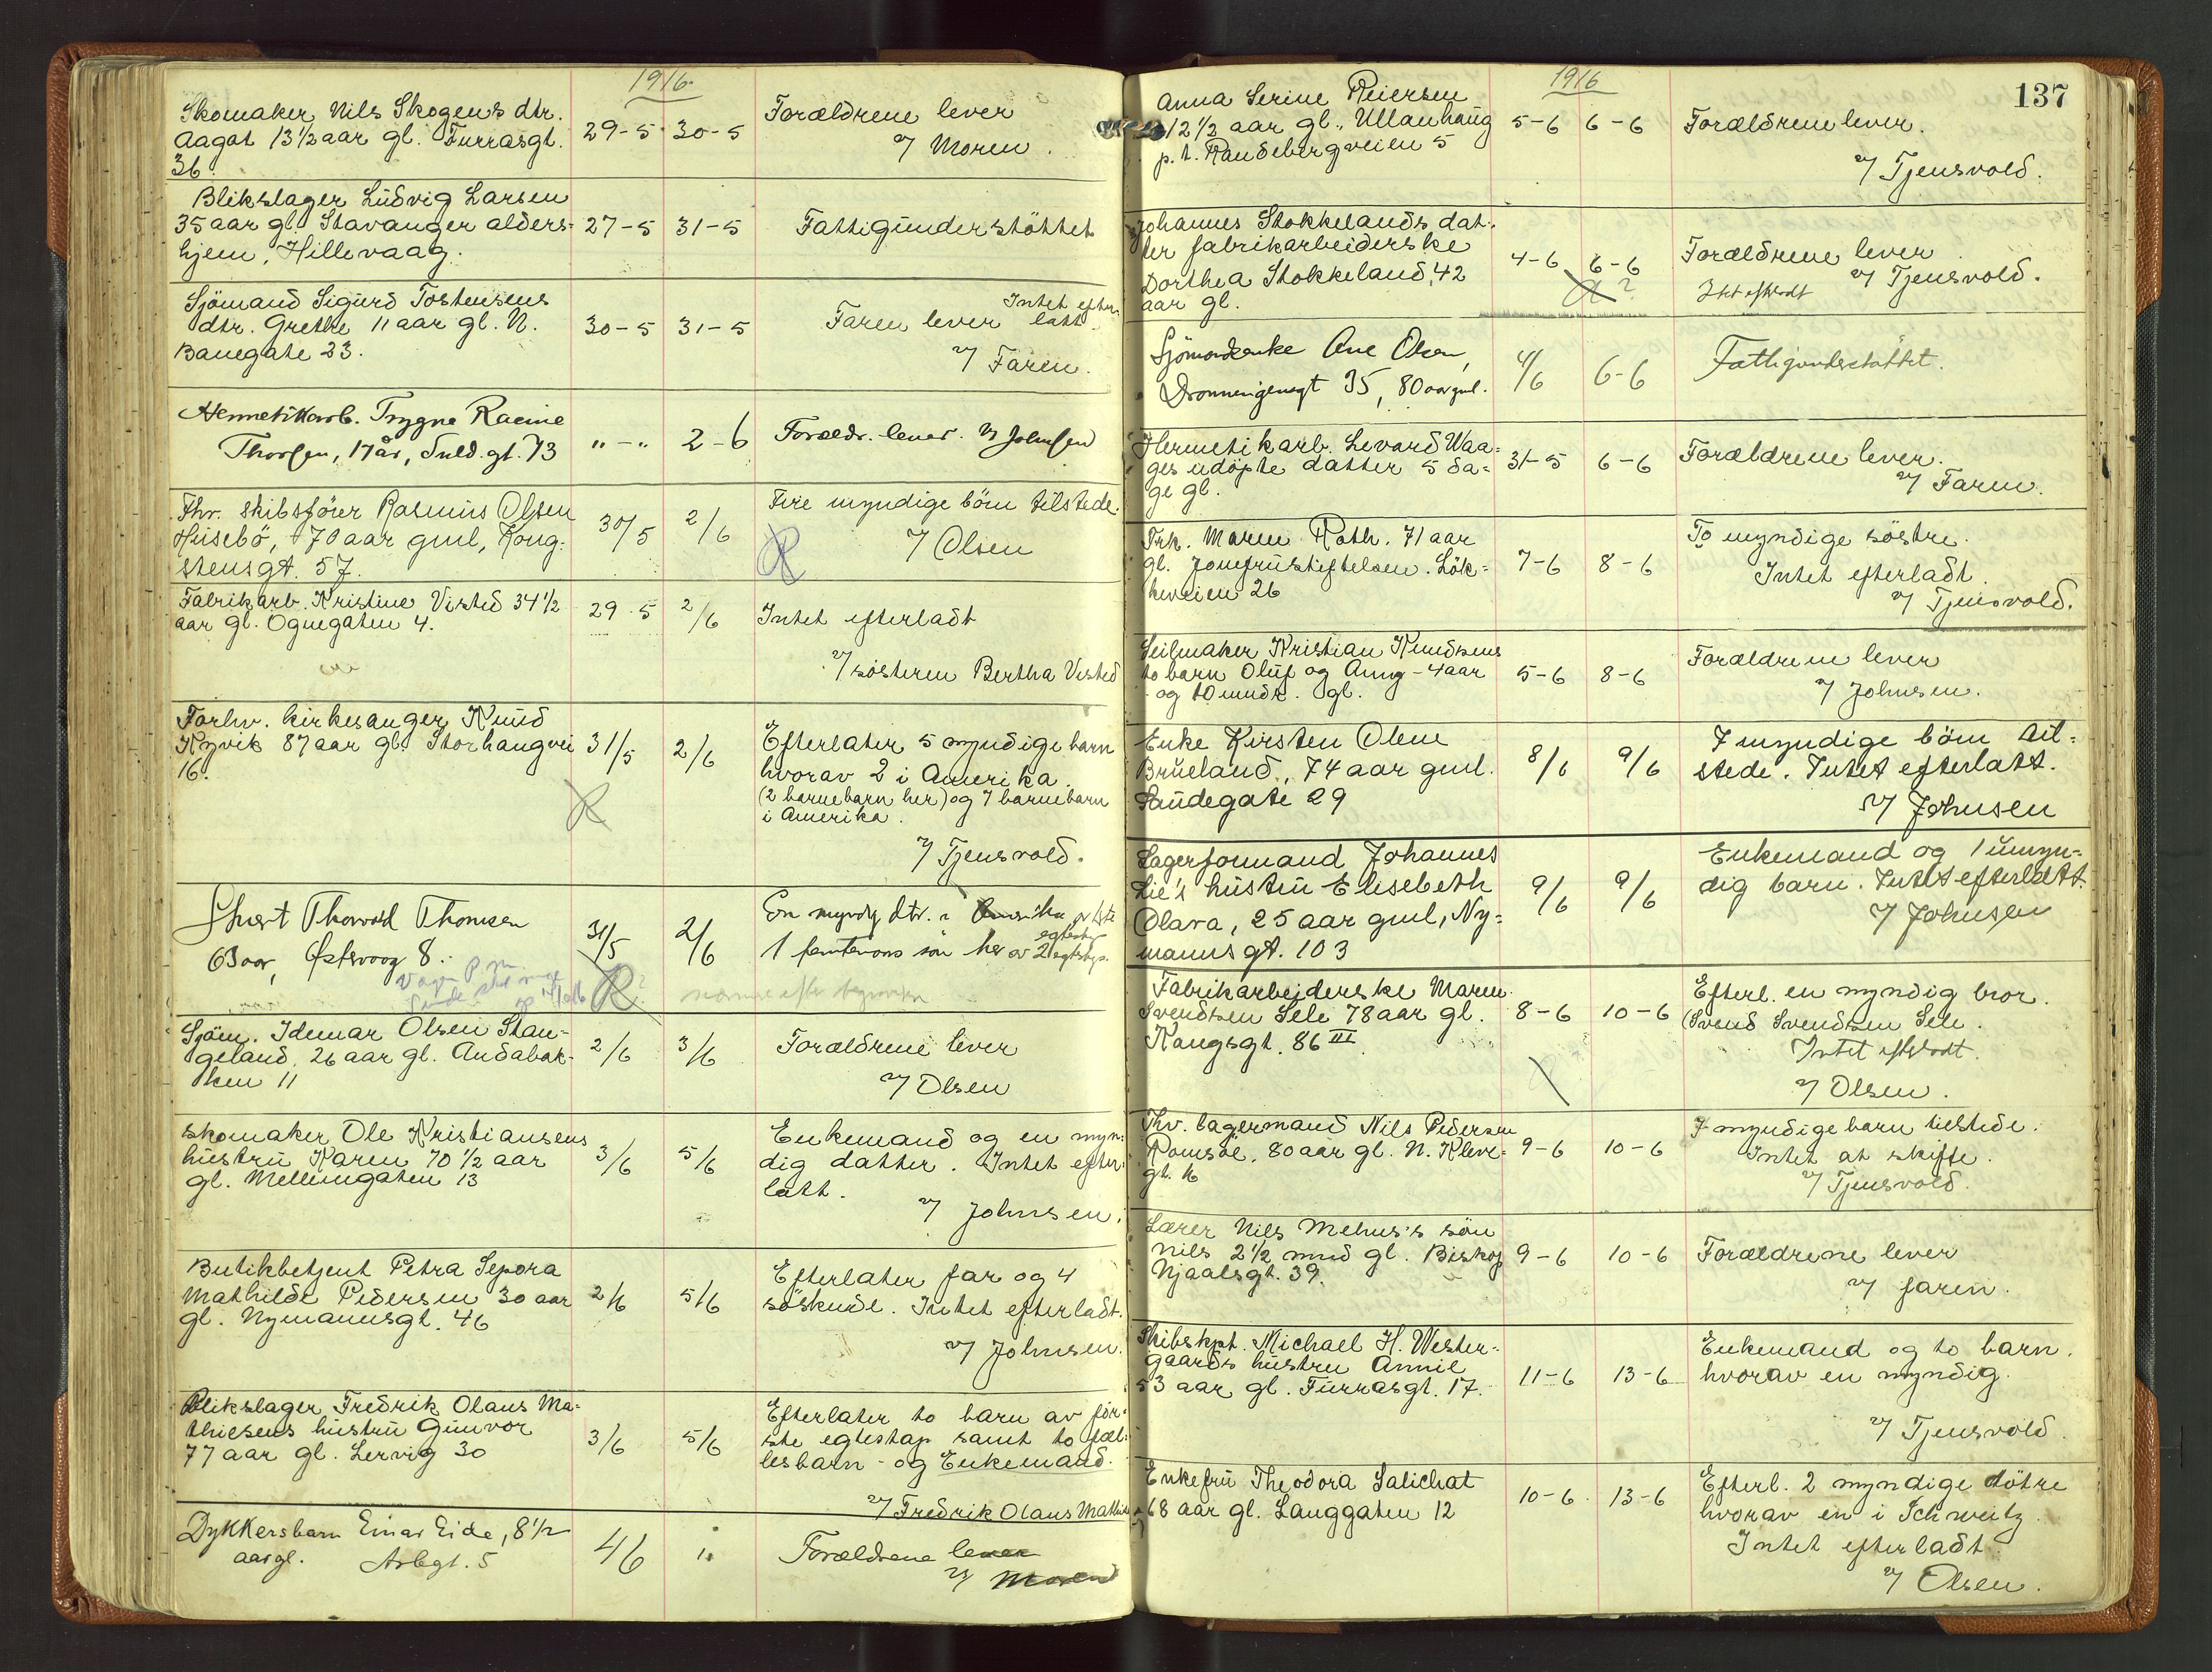 1916.
Skomaker Nils Skogens dtr.
Aagot 13½ aar gl. Furrasgt.
36
29-5 30-5
Forældrene lever
v/ Moren.
Blikslager Ludvig Larsen
35 aar gl. Stavanger alders-
hjem, Hillevaag.
27-5 31-5
Fattigunderstöttet
Sjömand Sigurd Tostensens
dtr. Grethe 11 aar gl. N.
Banegate 23.
30-5 31-5
Intet efter-
Faren lever latt.
v/ Faren.
Hermetikarb. Trygve Racine
Thorsen, 17 år, Suld.gt. 73
"-" 2-6
Forældr. lever. v/ Johnsen
Fhv. skibsförer Rasmus Olsen
Husebö, 70 aar gml, Kong-
stensgt. 57.
30/5 2/6
Fire myndige börn tilstede.
v/ Olsen
R
Fabrikarb. Kristine Visted 34½
aar gl. Ognegaten 4.
29-5 2/6
Intet efterladt
v/ søsteren Bertha Visted
Forhv. kirkesanger Knud
Kyvik 87 aar gl. Storhaugvei
16.
31/5 2/6
R
Efterlater 5 myndige barn
hvorav 2 i Amerika.
(2 barnebarn her) og 7 barnebarn
i Amerika.
v/ Tjensvold.
Thorvald Thomsen
63 aar, Østervaag 8.
31/5 2/6
R
En myndg dtr. i Amerika av 1ste
egtesk.
1 femtenaars sön her av 2 egtesk.
Sjöm. Idemar Olsen Stan-
geland, 26 aar gl. Andabak-
ken 11
2/6 3/6
Forældrene lever
v/ Olsen
Skomaker Ole Kristiansens
hustru Karen 70½ aar
gl. Mellemgaten 13
3/6 5/6
Enkemand og en myn-
dig datter. Intet efter-
latt.
v/ Johnsen.
Butikbetjent Petra Sepora
Mathilde Pedersen 30 aar
gl. Nymannsgt. 46
2/6 5/6
Efterlater far og 4
söskende. Intet efterladt.
v/ Johnsen.
Blikslager Fredrik Olaus Ma-
thiesens hustru Gunvor
77 aar gl. Lervig 30
3/6 5/6
Efterlater to barn av för-
ste egteskap samt to fæl-
lesbarn - og Enkemand.
v/ Fredrik Olaus Mathies
Dykkersbarn Einar Eide, 8½
aar gl. Arbgt. 5
4/6
Forældrene lever
v/ Moren
1916
137
Anna Serine Reiersen
12½ aar gl., Ullanhaug
p.t. Randebergveien 5
5-6 6-6
Forældrene lever.
v/ Tjensvold.
Johannes Stokkelands dat-
ter fabrikarbeiderske
Dorthea Stokkeland, 42
aar gl.
4-6 6-6
Forældrene lever
Intet efterladt v/ Tjensvold.
Sjömandsenke Ane Olsen,
Dronningensgt 35, 80 aar gml.
4/6 6-6
Fattigunderstöttet.
Hermetikarb. Levard Waa-
ges udöpte datter 5 da-
ge gl.
31-5 6-6
Forældrene lever.
v/ Faren.
Frk. Maren Roth. 71 aar
gl. Jomfrustiftelsen. Lök-
keveien 26
7-6 8-6
To myndige söstre.
Intet efterladt.
v/ Tjensvold.
Seilmaker Kristian Knudsens
to barn Oluf og Anny - 4 aar
og 10 mndr. gl.
5-6 8-6
Forældrene lever
v/ Johnsen.
Enke Kirsten Olene
Brueland, 74 aar gml.
Sandegate 29
8/6 9/6
7 myndige börn til-
stede. Intet efterlatt.
v/ Johnsen
Lagerformand Johannes
Lie's hustru Elisebeth
Olava, 25 aar gml, Ny-
mannsgt. 103
9/6 9/6
Enkemand og 1 umyn-
dig barn. Intet efterlatt.
v/ Johnsen
Fabrikarbeiderske Maren
Svendsen Sele 78 aar gl.
Kongsgt. 86 III
8-6 10-6
Efterl. en myndig bror.
(Svend Svendsen Sele.
Intet efterladt.
v/ Olsen.
Fhv. lagermand Nils Pedersen
Romsöe, 80 aar gl. N. Kleiv-
gt. 16
9-6 10-6
7 myndige barn tilstede.
Intet at skifte.
v/ Tjensvold.
Lærer Nils Mehus's sön
Nils 2½ mnd gl. Biskop
Njaalsgt. 39.
9-6 10-6
Forældrene lever
v/ faren.
Skibskpt. Michael H. Wester-
gaards hustru Annie
53 aar gl. Furrasgt. 17.
11-6 13-6
Enkemand og to barn.
hvorav en myndig.
v/ Tjensvold.
Enkefru Theodora Salichat
68 aar gl. Langgaten 12
10-6 13-6
Efterl. 2 myndige dötre
hvorav en i Schweitz.
Intet efterladt.
v/ Olsen.